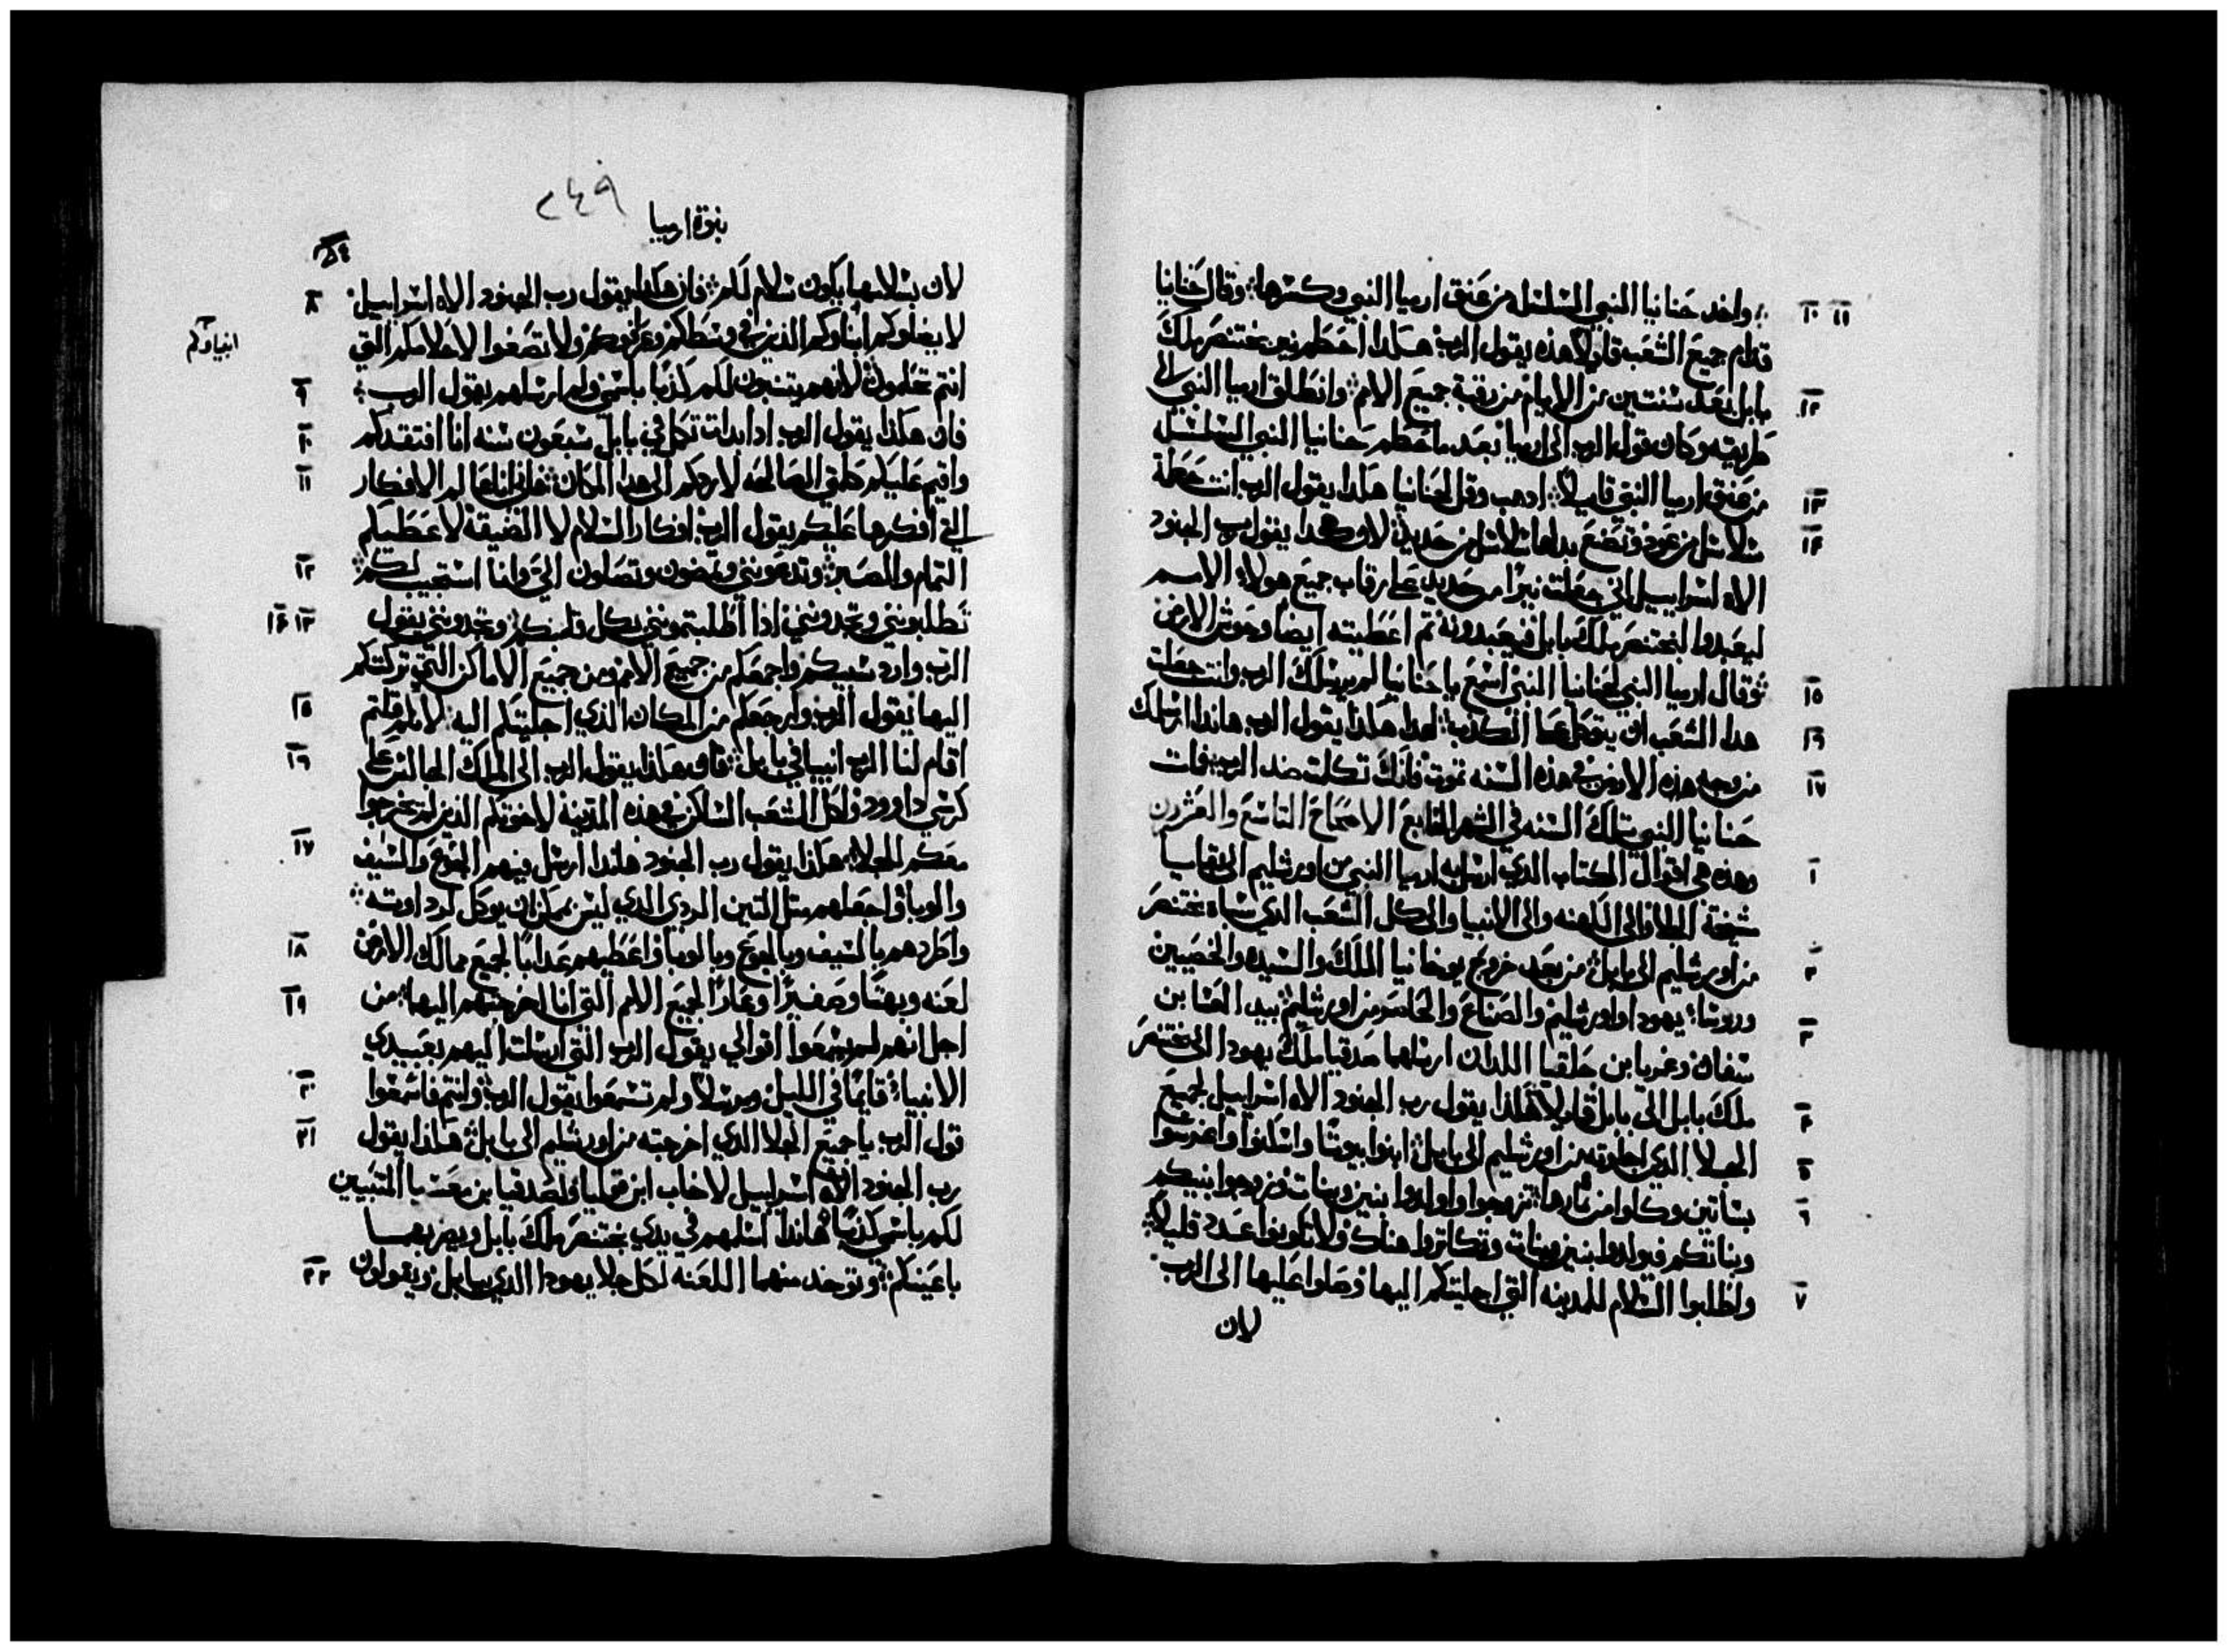 واخد حنانيا النبي السلسل من عنق ارميا النبي وكسرها؛ وقال حنانيا ١٠ ١١
قدام جميع الشعب قايلاً هذه يقول الرب هكذا احطم نير بختنصر ملك
بابل بعد سنتين من الايام من رقبة جميع الامم؛ وانطلق ارميا النبي الى ١٢
طريقه وكان قول الرب الى ارميا بعد ما حطم حنانيا النبي السلسل
من عنق ارميا النبي قايلاً؛ ادهب وقل لحنانيا هكدا يقول الرب انت حطمت ١٣
سلاسل من عود وتصنع بدلها سلاسل من حديد؛ لان هكدا يقول رب الجنود ١٤
الاه اسراييل اني جعلت نيرًا من حديد على رقاب جميع هولاء الامم
ليعبدوا لبختنصر ملك بابل فيعبدونه ثم اعطيته ايضا وحوش الارض
وقال ارميا النبي لحنانيا النبي اسمع يا حنانيا لم يرسلك الرب وانت جعلت ١٥
هدا الشعب ان يتوكل على الكذب؛ لهدا هكذا يقول الرب هاندا ارسلك ١٦
من وجه هذه الارض في هذه السنه تموت فانك تكلمت ضد الرب؛ فمات ١٧
حنانيا النبي بتلك السنه في الشهر السابع الاصحاح التاسع والعشرون
وهذه هي اقوال الكتاب الذي ارسل به ارميا النبي من اورشليم الى بقايا ١
شيخة الجلا والى الكهنه والى الانبيا والى كل الشعب الذي سباه بختنصر
من اورشليم الى بابل؛ من بعد خروج يوخانيا الملك والسيده والخصيين ٢
وروسا؛ يهودا واورشليم والصناع والحاصر من اورشليم؛ بيد العسا بن ٣
سفان وغمريا بن حلقيا اللدان ارسلهما صدقيا ملك يهودا الى بختنصر
ملك بابل الى بابل قايلاً؛ هكذا يقول رب الجنود الاه اسراييل لجميع ٤
الجلا الذي اجليته من اورشليم الى بابل؛ ابنوا بيوتًا واسكنوا واغرسوا ٥
بساتين وكلوا من ثمارها؛ تزوجوا واولدوا بنين وبنات وزوجوا بنيكم ٦
وبناتكم فيولدوا بنين وبنات وتكاتروا هناك ولا تكونوا عدد قليلاً؛
واطلبوا السلام للمدينه التي اجليتكم اليها وصلوا عليها الى الرب ٧
لان
٢٤٩
نبوة ارميا
لان بسلامها يكون سلام لكم؛ فان هكذا يقول رب الجنود الاه اسراييل ٨
لا يغلوكم انبياوكم الذين في وسطكم وعرافوكم ولا تصغوا لاحلامكم التي
انبياوكم
انتم تحلمون؛ لانهم يتنبون لكم كذبًا باسمي ولم ارسلهم يقول الرب؛ ٩
فان هكذا يقول الرب ادا بدات تكمل في بابل سبعون سنه انا افتقدكم ١٠
واقيم عليكم كلمتي الصالحه لاردكم الى هدا المكان؛ فاني انا عالم الافكار ١١
التي افكرها عليكم يقول الرب افكار السلام لا الضيقة لاعطيكم
التمام والصبر؛ وتدعونني وتمضون وتصلون الي وانا استجيب لكم؛ ١٢
تطلبونني وتجدونني اذا طلبتمونني بكل قلبكم؛ وتجدونني يقول ١٣ ١٤
الرب وارد سبيكم واجمعكم من جميع الامم ومن جميع الاماكن التي تركتكم
اليها يقول الرب وارجعكم من المكان الذي اجليتكم اليه؛ لانكم قلتم ١٥
اقام لنا الرب انبيا في بابل؛ فان هكذا يقول الرب الى الملك الجالس على ١٦
كرسي داوود ولكل الشعب الساكن في هذه المدينة لاخوتكم الذين لم يخرجوا
معكم للجلا؛ هكذا يقول رب الجنود هاندا ارسل فيهم الجوع والسيف ١٧
والوبا واجعلهم متل التين الردي الدي ليس يمكن ان يوكل لرداوته؛
واطردهم بالسيف وبالجوع وبالوبا واعطيهم عدابًا لجميع ممالك الارض ١٨
لعنه وبهتًا وصفيرًا وعارًا لجميع الامم التي انا اخرجتهم اليها؛ من ١٩
اجل انهم لم يسمعوا اقوالي يقول الرب التي ارسلت اليهم بعبيدي
الانبياء؛ قايمًا في الليل ومرسلاً ولم تسمعوا يقول الرب؛ وانتم فاسمعوا ٢٠
قول الرب يا جميع الجلا الدي اخرجته من اورشليم الى بابل؛ هكذا يقول ٢١
رب الجنود الاه اسراييل لاخاب ابن قوليا ولصدقيا بن معسيا المتنبيين
لكم باسمي كذبًا؛ هاندا اسلمهم في يدي بختنصر ملك بابل ويضربهما
باعينكم؛ وتوخد منهما اللعنه لكل جلا يهودا الدي ببابل ويقولون ٢٢